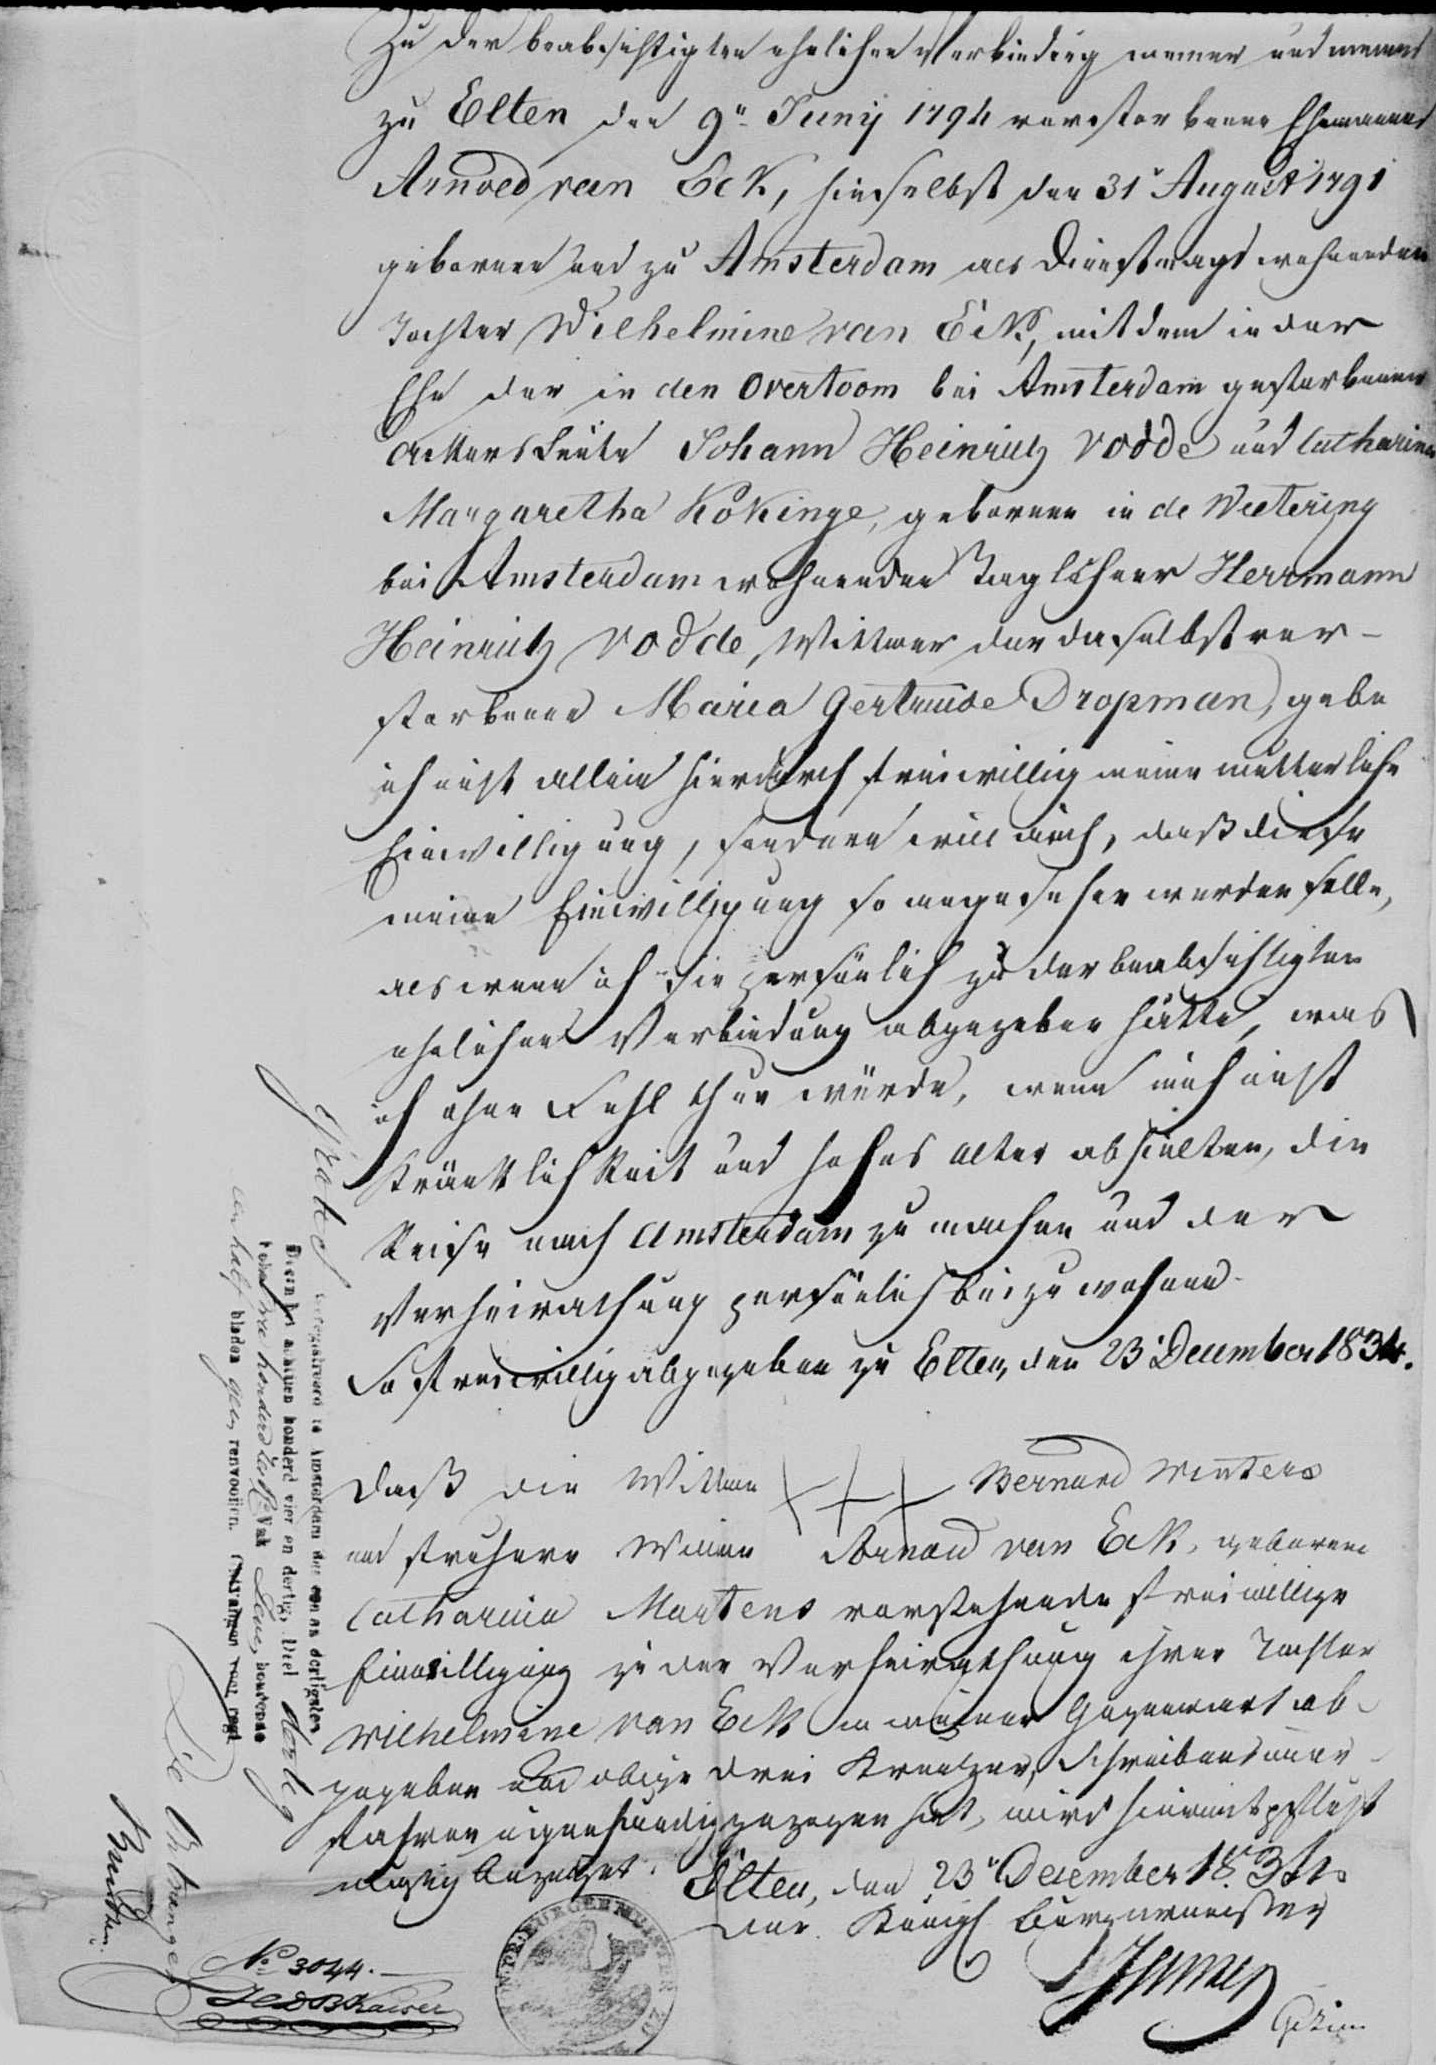 Zu der beabsichtigten ehelichen Verbindung meiner und meines
zu Elten den 9n Junij 1794 verstorbenen Ehemannes
Arnold van Eck, hieselbst den 31n August 1791
gebornen und zu Amsterdam als Dienstmagd wohnenden
Tochter Wilhelmine van Eck, mit dem in der
Ehe der in den Overtoom bei Amsterdam gestorbenen
Ackersleute Johann Heinrich Vodde und Catharina
Margaretha Kökinge, gebornen in de Weetering
bei Amsterdam wohnenden Taglöhner Herrmann
Heinrich Vodde, Wittwer der daselbst ver-
storbenen Maria Gertruide Dropman, gebe
ich nicht allein hierdurch freiwillig meine mütterliche
Einwilligung, sondern will auch, daß diese
meine Einwilligung so angesehen werden solle,
als wenn ich sie persönlich zu der beabsichtigten
ehelichen Verbindung abgegeben hätte, was
ich ohne Fehl thun würde, wenn mich nicht
Kränklichkeit und hohes Alter abhielten, die
Reise nach Amsterdam zu machen und der
Verheirathung persönlich beizuwohnen.
So freiwillig abgegeben zu Elten, den 23n December 1834.
Daß die Wittwe +++ Bernard Winters
und frühere Wittwe Arnold van Eck, geborene
Catharina Martens vorstehende freiwillige
Einwilligung zu der Verheirathung ihrer Tochter
Wilhelmine van Eck in meiner Gegenwart ab-
gegeben und obige drei Kreutzer, Schreibensuner-
fahren eigenhändig gezogen hat, wird hiermit pflicht
mäßig bezeuget.
Elten, den 23n December 1834.
Der Königl Bürgermeister
Geregistreerd te Amsterdam den een en dertigsten
December achttien honderd vier en dertig, Deel dertig
folio honderd Vak houdende
een half bladen geen renvooijen. Ontvangen voor regt
De Ontvanger
No 3044.
BURGERMEISTER